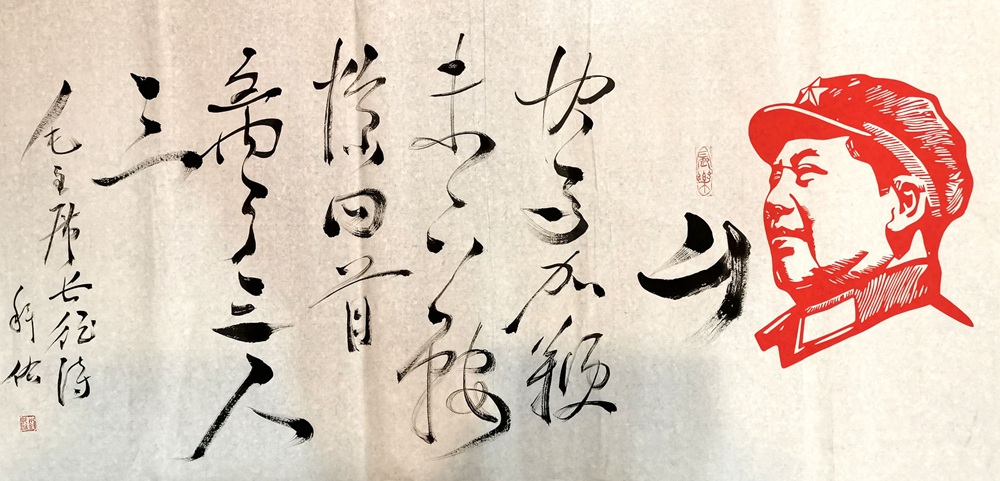 山
快马加鞭
未下鞍
惊回首
离天三尺
三
毛主席长征诗
長樂